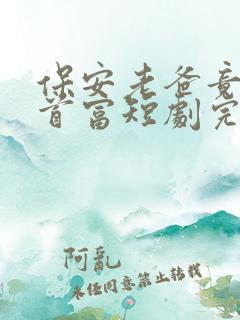 保安老爸竟
首富短劇完
阿亂
未經同意禁止轉載